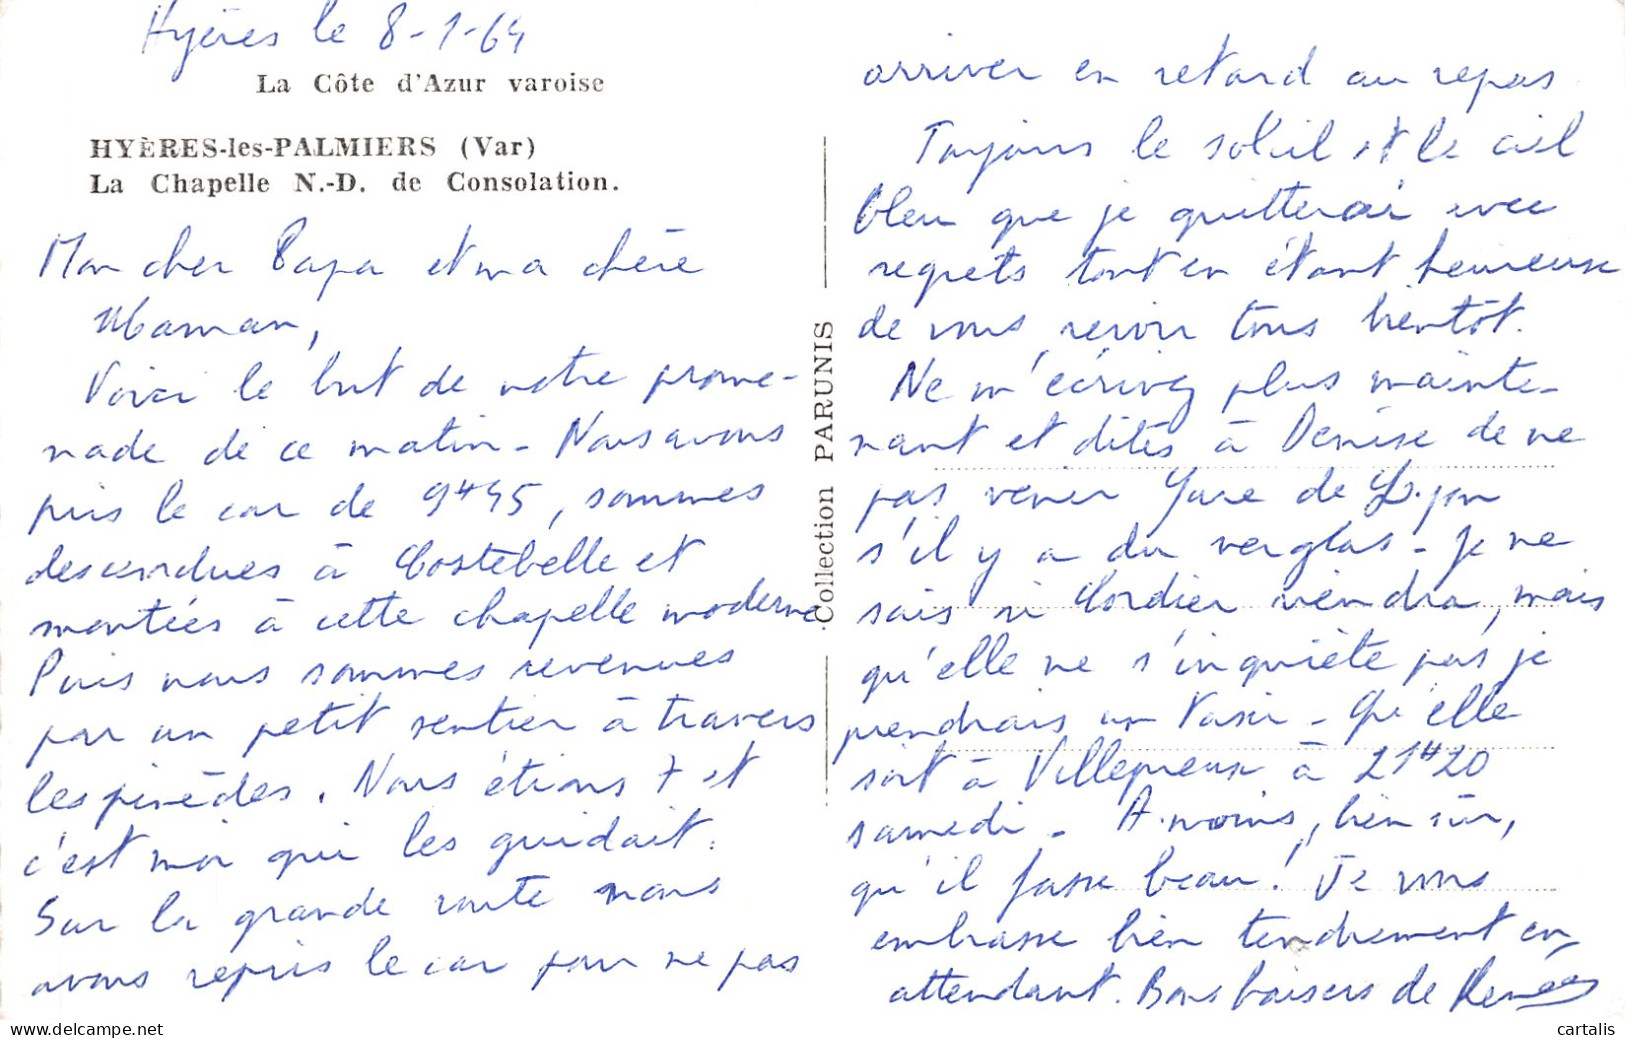 Hyères le 8-1-64
La Côte d'Azur varoise
HYÈRES-les-PALMIERS (Var)
La Chapelle N.-D. de Consolation.
Mon cher Papa et ma chère
Maman,
Voici le but de notre prome-
nade de ce matin - Nous avons
pris le car de 9H45, sommes
descendues à Costebelle et
montées à cette chapelle moderne
Puis nous sommes revenues
par un petit sentier à travers
les pinèdes. Nous étions 7 et
c'est moi qui les guidait.
Sur la grande route nous
avons repris le car pour ne pas
Collection PARUNIS
arriver en retard au repas
Toujours le soleil et le ciel
bleu que je quitterai avec
regrets tout en étant heureuse
de vous revoir tous bientôt.
Ne m'écrivez plus mainte-
nant et dites à Denise de ne
pas venir Gare de Lyon
s'il y a du verglas - Je ne
sais si Cordier viendra, mais
qu'elle ne s'inquiète pas je
prendrais un taxi - Qu'elle
soit à Villepreux à 21H20
samedi - A moins, bien sûr,
qu'il fasse beau! Je vous
embrasse bien tendrement en
attendant. Bons baisers de Renée
cartalis